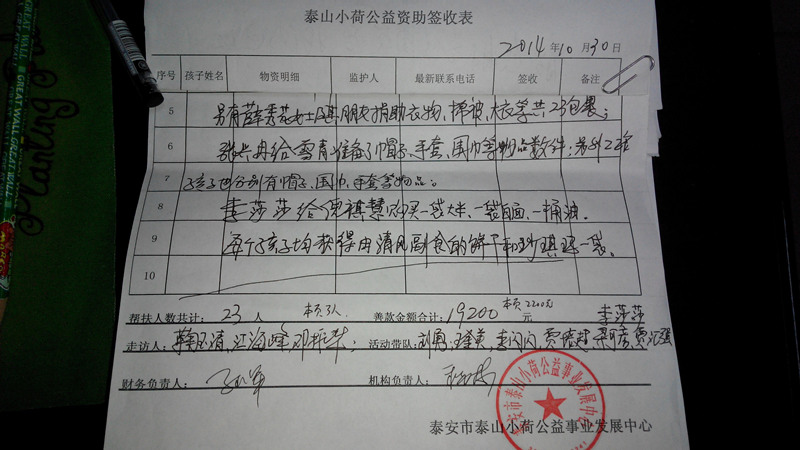 泰山小荷公益资助签收表
2014年10月30日
序号 孩子姓名 物资明细 监护人 最新联系电话 签收 备注
5 另有薛秀花女士及其朋友捐助衣物、棉被、大衣等共23包裹;
6 给雪青准备了帽子、手套、围巾等物品数件;另外2
7 孩子也分别有帽子、围巾、手套等物品;
8 李莎莎给倪祺慧购买一袋大米、一袋白面、一桶油。
9 每个孩子均获得由清风副食的饼干和沙琪玛一袋。
10
帮扶人数共计: 23 人 善款金额合计: 19200 元 2200元 李莎莎
走访人: 江海峰、邓振华; 活动带队: 刘勇、李闪闪、
财务负责人: 机构负责人:
泰安市泰山小荷公益事业发展中心
泰安市泰山小荷公益事业发展中心
GREAT WALL
Planting